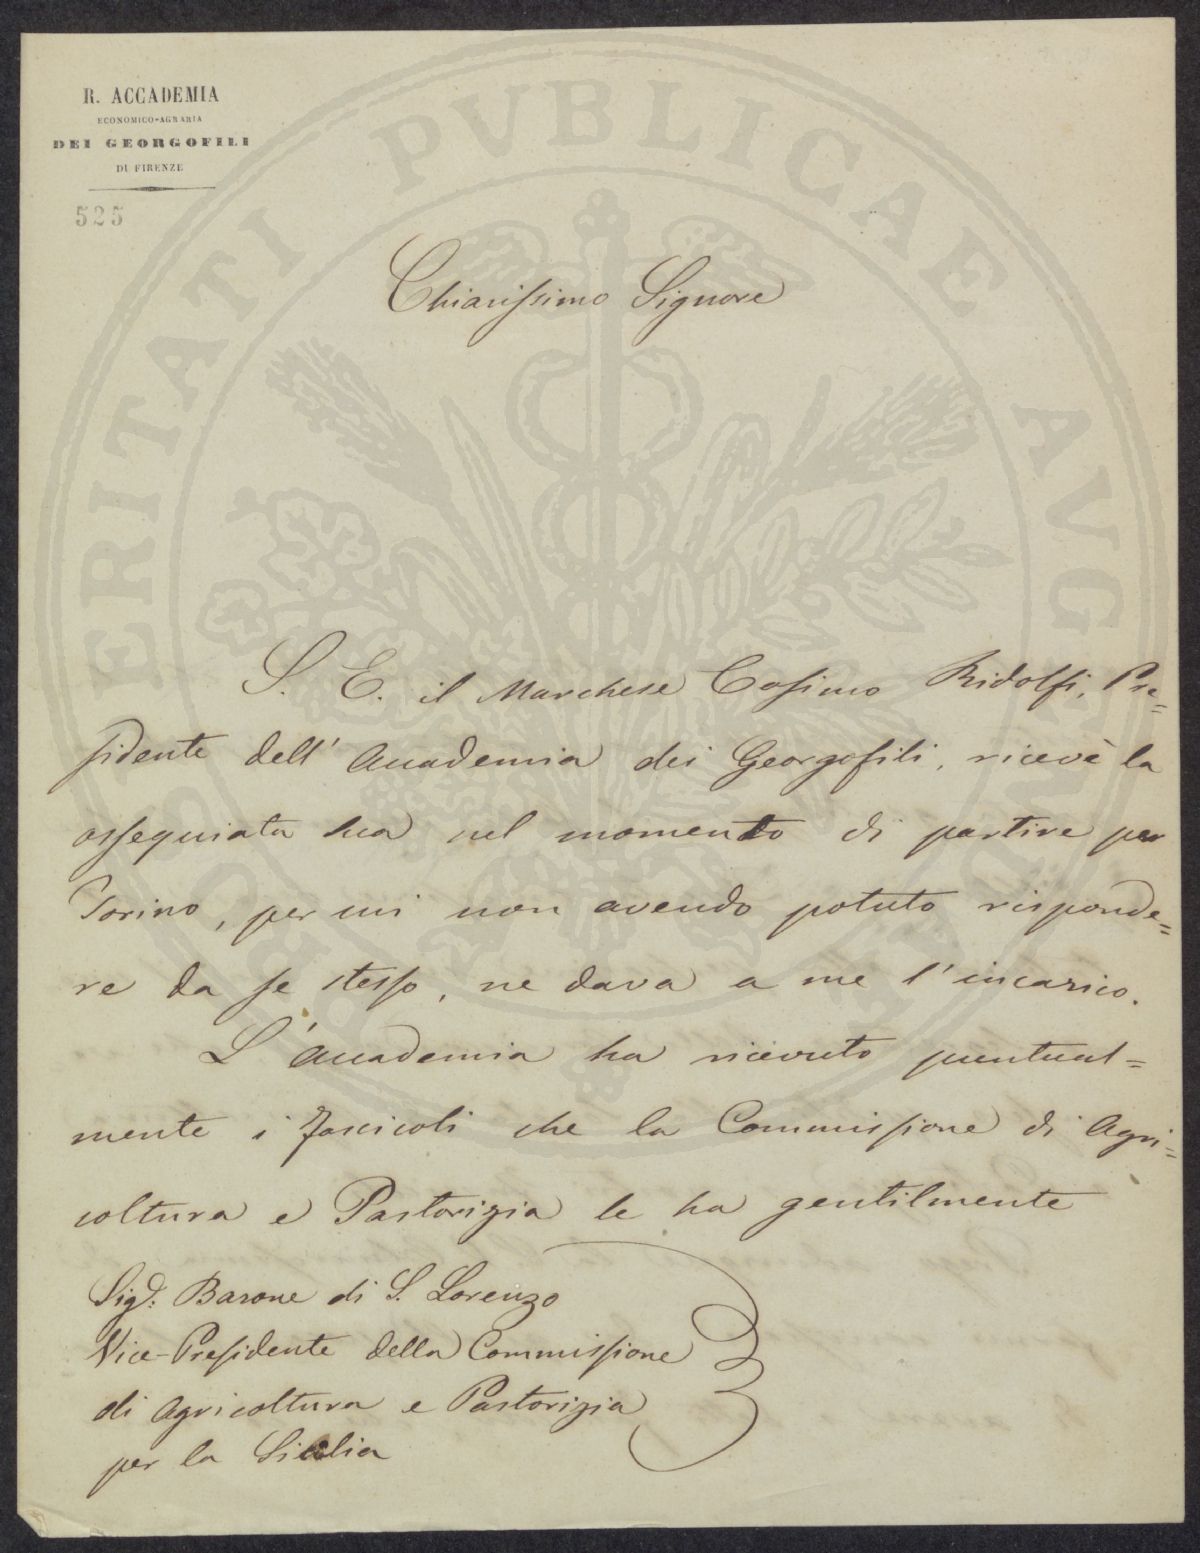 R. ACCADEMIA
ECONOMICO-AGRARIA
DEI GEORGOFILI
DI FIRENZE
525
PROSPERITATI PVBLICAE AVGENDAE
Chiarissimo Signore
S. E. il Marchese Cosimo Ridolfi, Pre=
sidente dell' Accademia dei Georgofili, ricevè la
ossequiata sua nel momento di partire per
Torino, per cui non avendo potuto risponde=
re da se stesso, ne dava a me l'incarico.
L'Accademia ha ricevuto puntual=
mente i fascicoli che la Commissione di Agri=
coltura e Pastorizia le ha gentilmente
Sigr. Barone di S. Lorenzo
Vice-Presidente della Commissione
di Agricoltura e Pastorizia
per la Sicilia